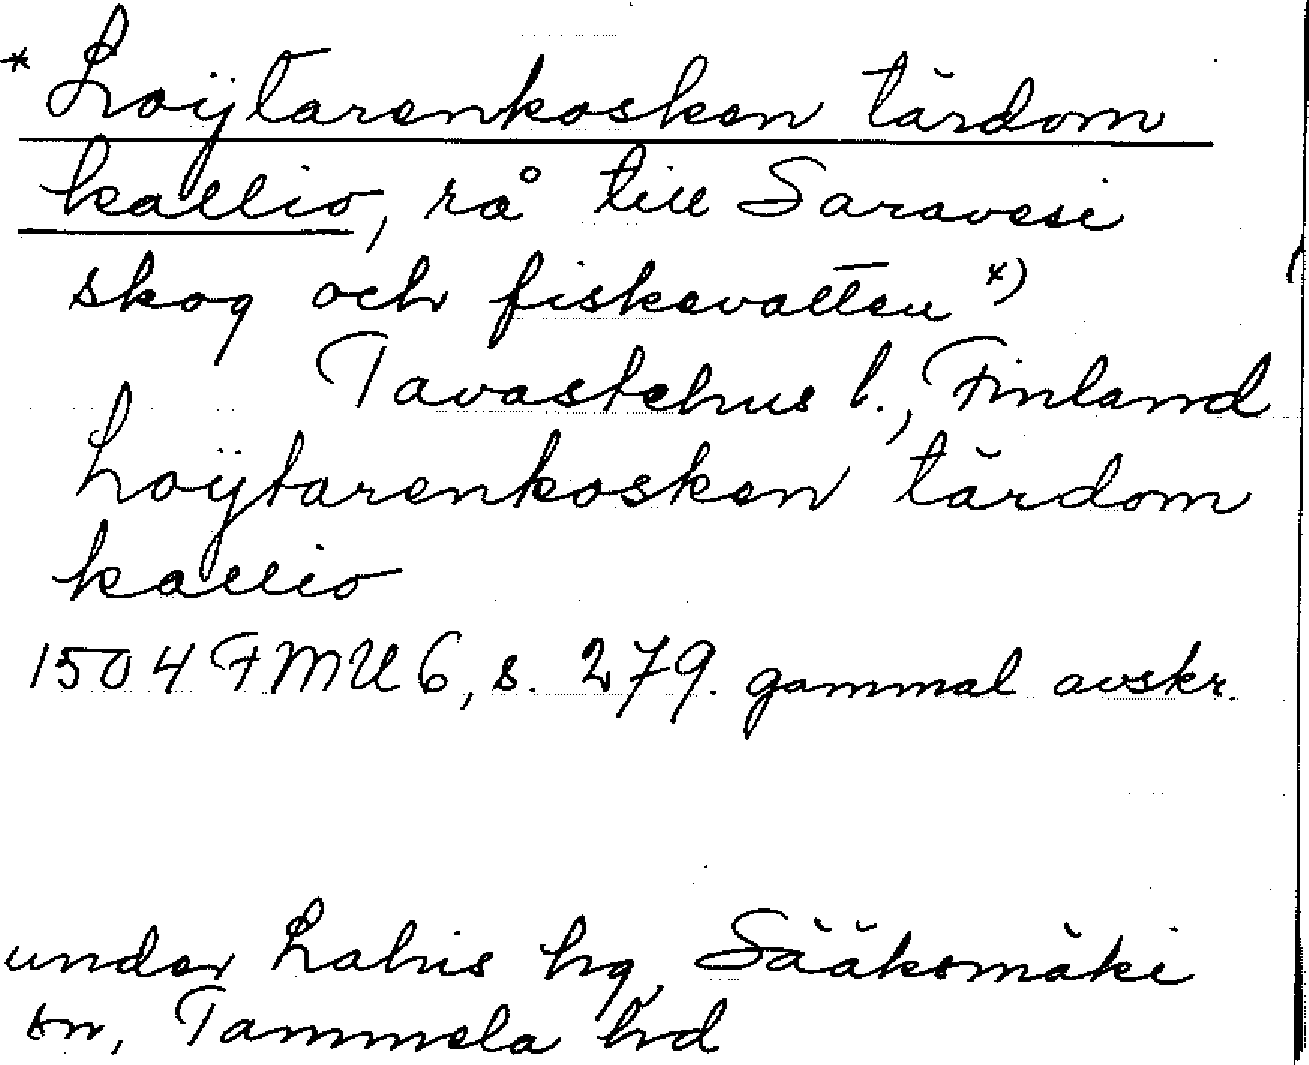 * Loÿtarenkosken tärdom
kallio, rå till Saravesi
skog och fiskevatten *)
Tavastehus l., Finland
Loÿtarenkosken tärdom
kallio
1504 FMU 6, s. 279. gammal avskr.
under Lahis hg, Sääksmäki
sn, Tammela hd